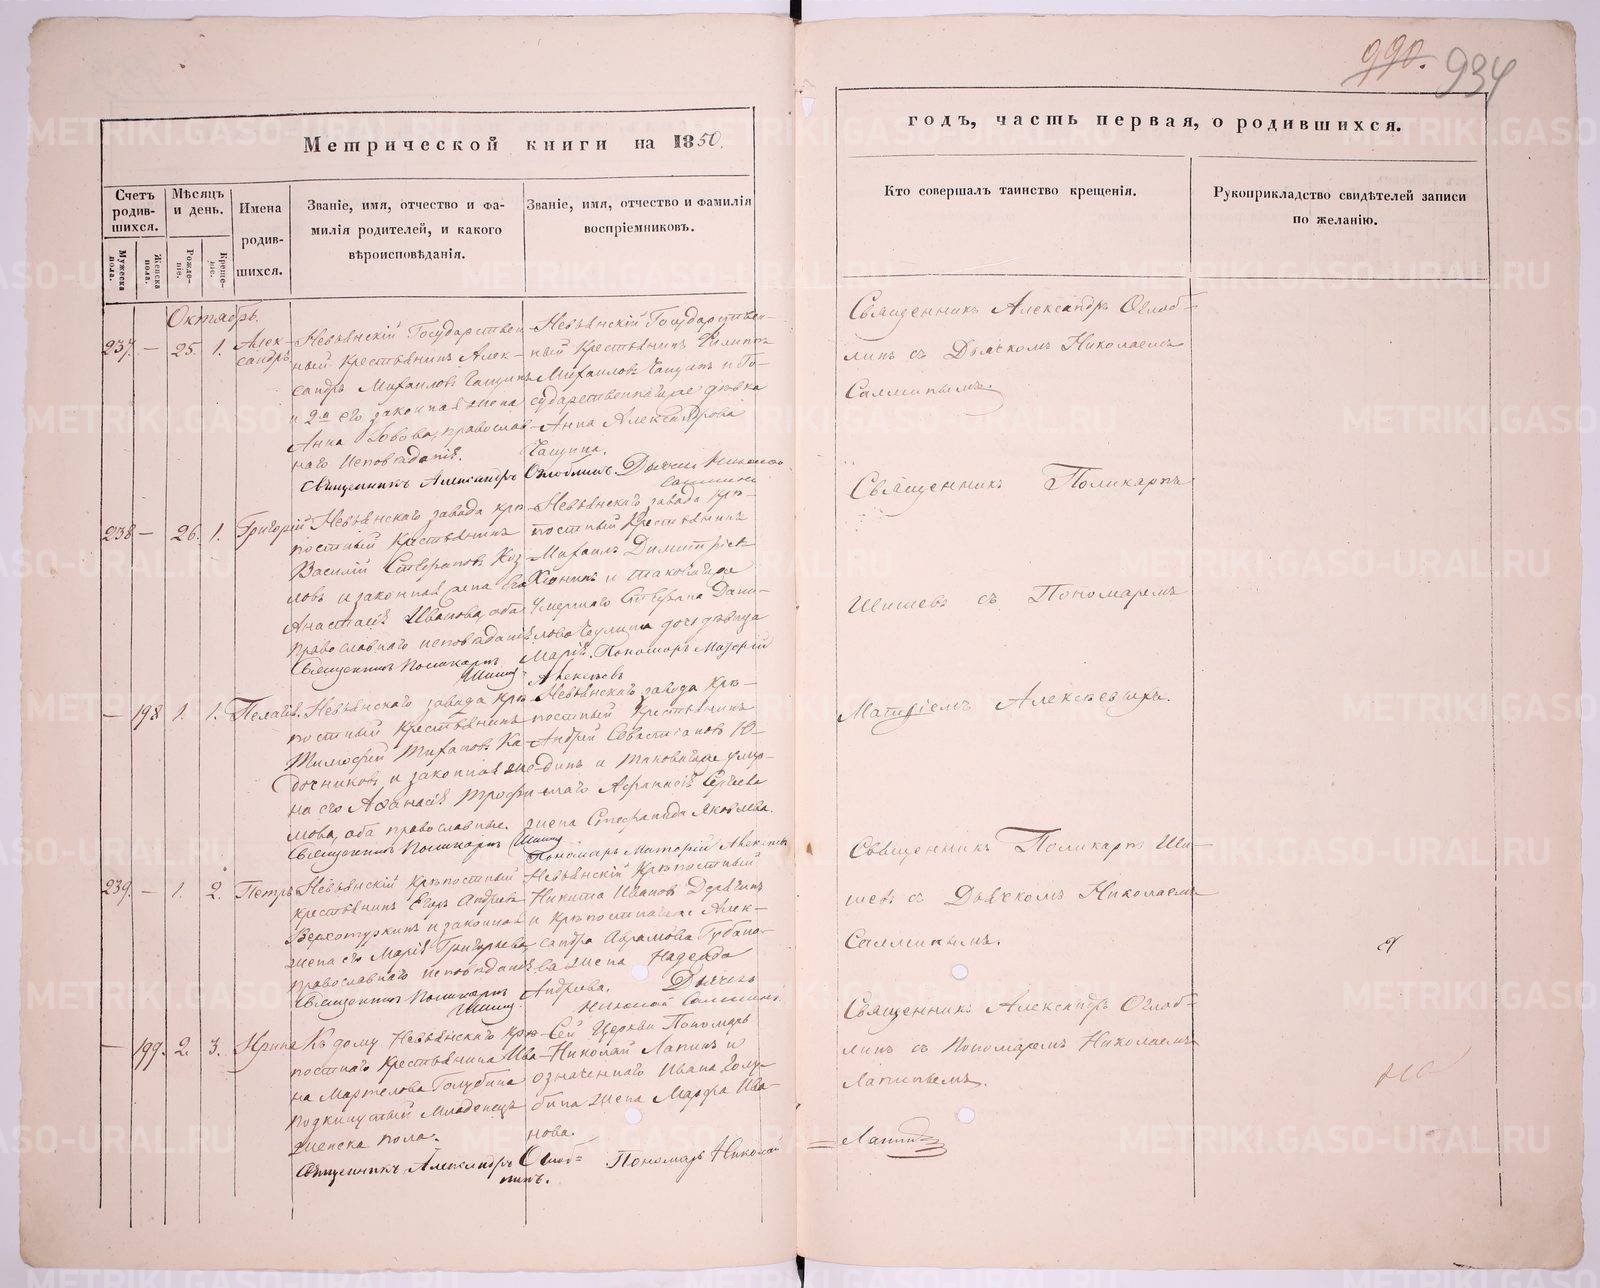 990. 934
Метрической книги на 1850.
годъ, часть первая, о родившихся.
Счетъ родив-шихся.
Мужеска пола.
Женска пола.
Мѣсяцъ и день.
Рожде-ніе.
Креще-ніе.
Имена родив-шихся.
Званіе, имя, отчество и фа-
милія родителей, и какого
вѣроисповѣданія.
Званіе, имя, отчество и фамилія
воспріемниковъ.
Кто совершалъ таинство крещенія.
Рукоприкладство свидѣтелей записи
по желанію.
Октябрь.
237. — 25. 1. Алек-
сандръ
Невьянскій Государствен-
ный Крестьянинъ Алек-
сандръ Михаиловъ Чащинъ
и 2я его законная жена
Анна Львова, православ-
наго исповѣданія.
Невьянскій Государствен-
ный Крестьянинъ Филиппъ
Михаиловъ Чащинъ и Го-
сударственная же дѣвка
Анна Александрова
Чащина.
Священникъ Александръ Оглоблинъ. Дьячекъ Николай
Священникъ Александръ Оглоб-
линъ съ Дьячкомъ Николаемъ
238 — 26. 1. Григорій
Невьянскаго завода крѣ-
постный Крестьянинъ
Василій Стефановъ Коз-
ловъ и законная жена его
Анастасія Иванова, оба
православнаго исповѣданія
Невьянскаго завода крѣ-
постный Крестьянинъ
Михаилъ Димитріевъ
и таковагоже
умершаго Стефана Дани-
лова дочь дѣвица
Марія. Пономарь Матфій
Алексѣевъ
Священникъ Поликарпъ
Шишевъ
Священникъ Поликарпъ
Шишевъ съ Пономаремъ
Матфіемъ Алексѣевымъ.
— 198 1. 1. Пелагія.
Невьянскаго завода крѣ-
постный Крестьянинъ
Тимофей Тихановъ Ка-
дочниковъ и законная же-
на его Афанасія Трофи-
мова, оба православные.
Невьянскаго завода крѣ-
постный Крестьянинъ
Андрей Севастіановъ Ю-
динъ и таковагоже умер-
шаго Афанасія Сергѣева
жена Стефанида Яковлева.
Священникъ Поликарпъ Шишевъ
Пономарь Матфій Алексѣевъ
239. — 1. 2. Петръ
Невьянскій Крѣпостный
крестьянинъ Егоръ Андреевъ
Верхотуркинъ и законная
жена его Марія Григорьева
православнаго исповѣданія
Невьянскій Крѣпостный
Никита Ивановъ Дерябинъ
и крѣпостнагоже Алек-
сандра Аврамова Губано-
ва жена Надежда
Андреева. Дьячекъ
Николай
Священникъ Поликарпъ
Шишевъ
Священникъ Поликарпъ Ши-
шевъ съ Дьячкомъ Николаемъ
— 199. 2. 3. Ирина
Къ дому Невьянскаго крѣ-
постнаго крестьянина Ива-
на Мартелова Голубина
подкинутый младенецъ
женска пола.
Сей Церкви Пономарь
Николай Лапинъ и
означеннаго Ивана Голу-
бина жена Марфа Ива-
нова.
Священникъ Александръ Оглоб-
линъ.
Пономарь Николай
Лапинъ
Священникъ Александръ Оглоб-
линъ съ Пономаремъ Николаемъ
Лапинымъ.
METRIKI.GASO-URAL.RU